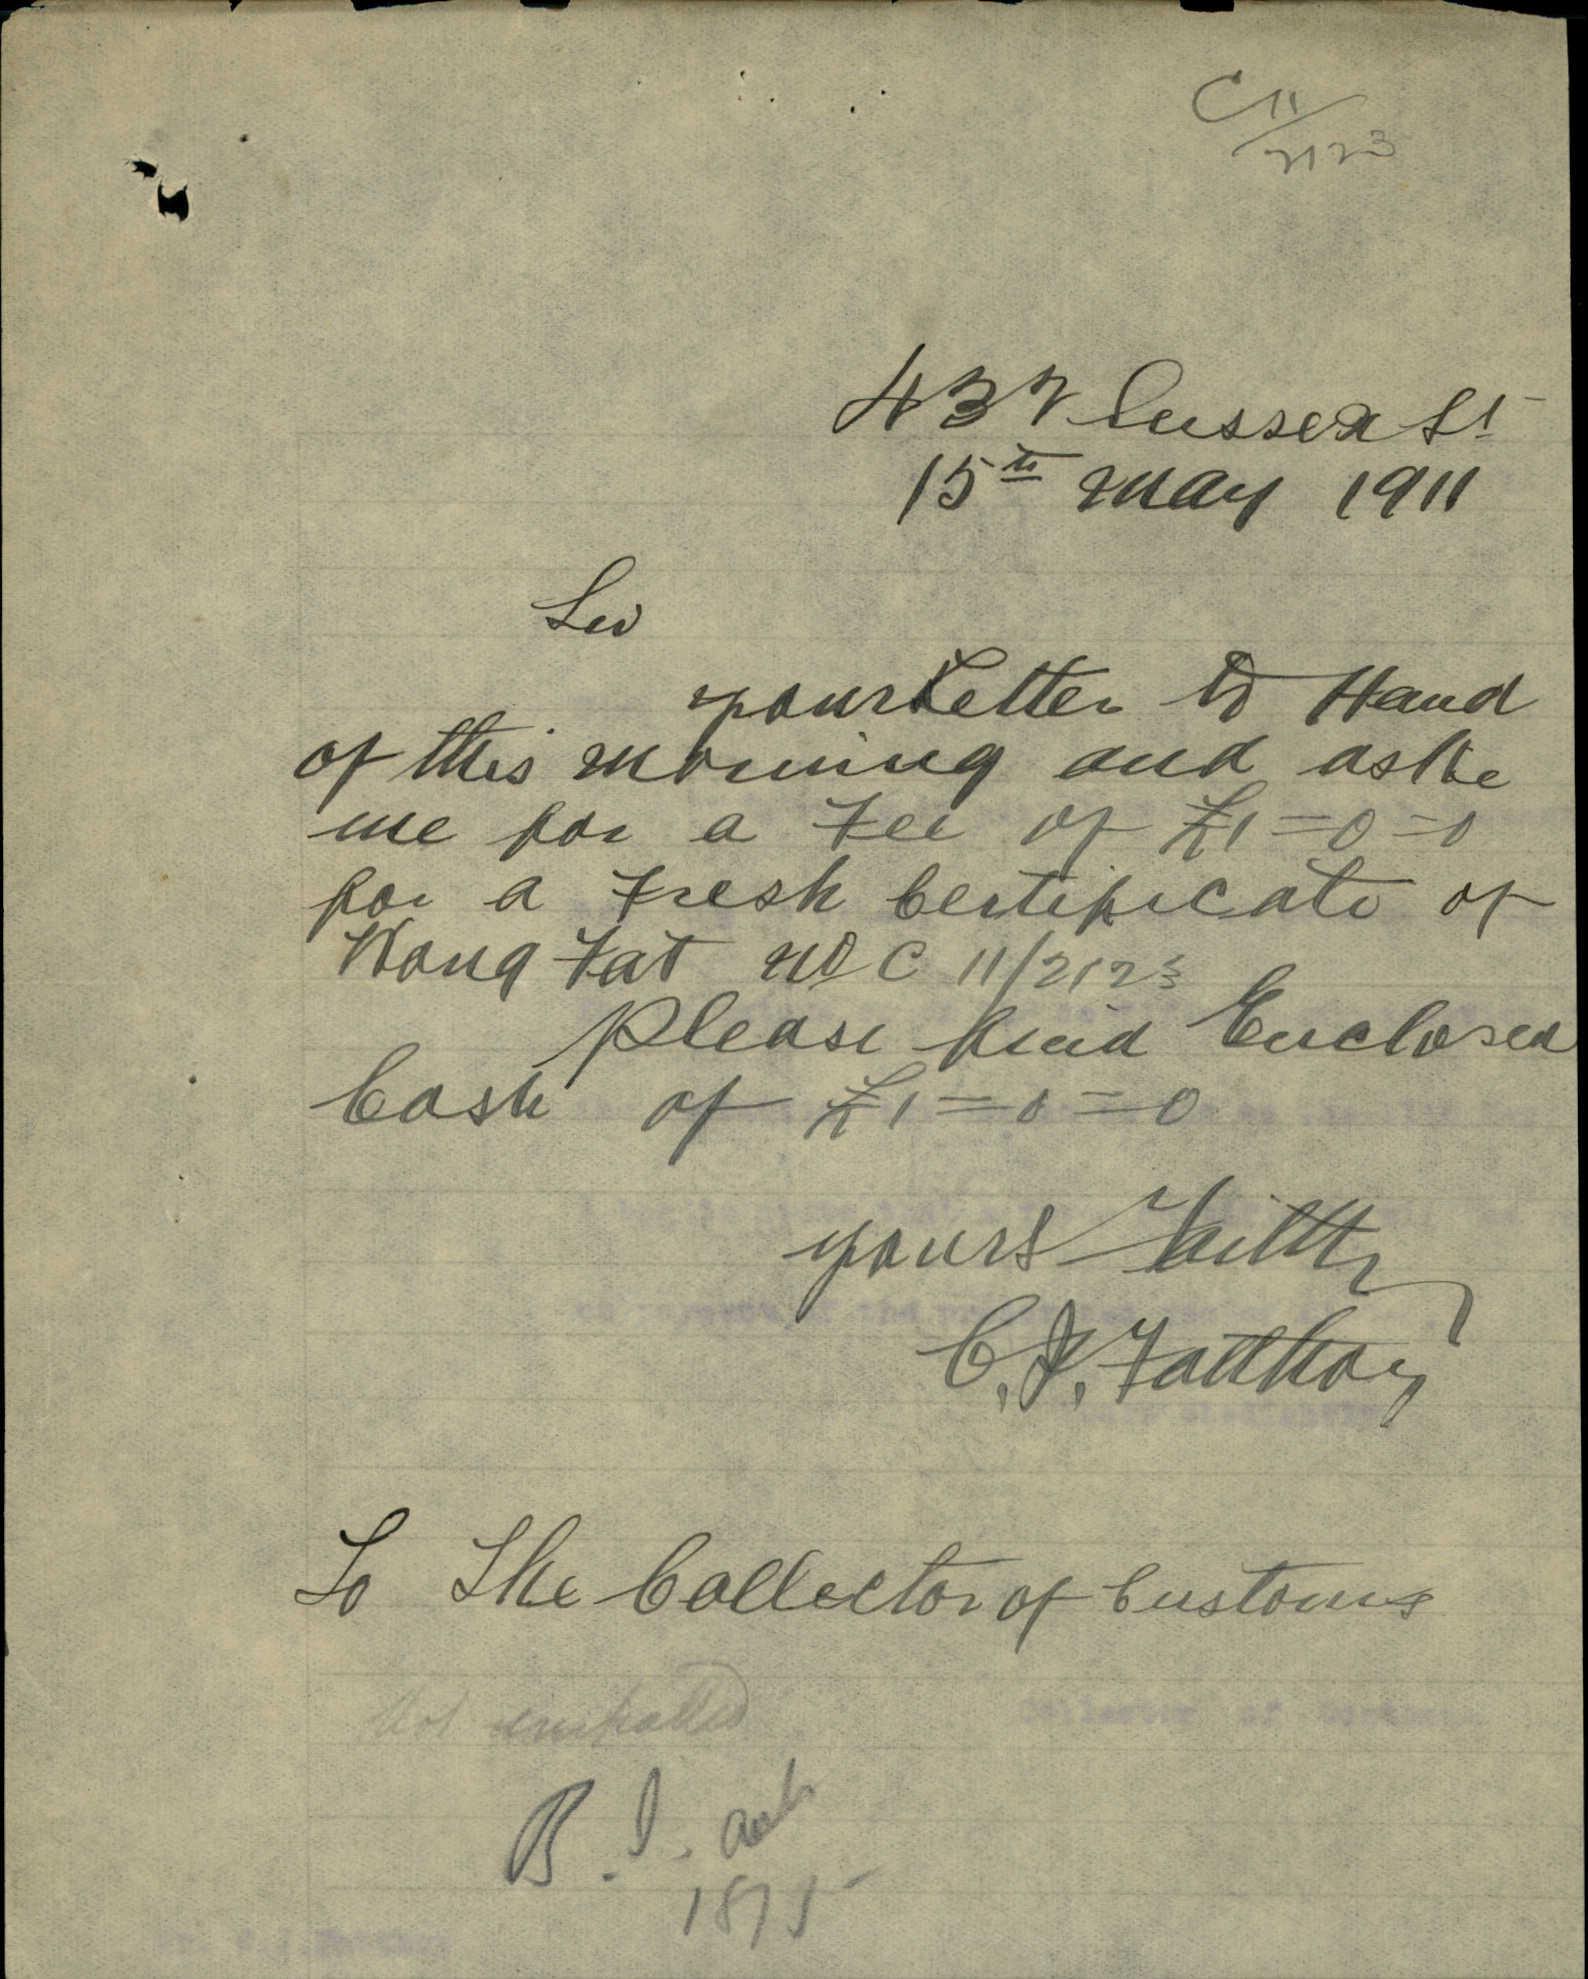 C 11/2123
437 Sussex St
15th May 1911
Sir
your Letter to Hand
of this morning and aske
me for a Fee of £1=0=0
for a Fresh Certificate of
Wong Fat No C 11/2123
Please find Enclosed
Cash of £1=0=0
yours Faithy
C. J. Fatthoy
To The Collector of Customs
Not
B. I.
1875
Collector of Customs